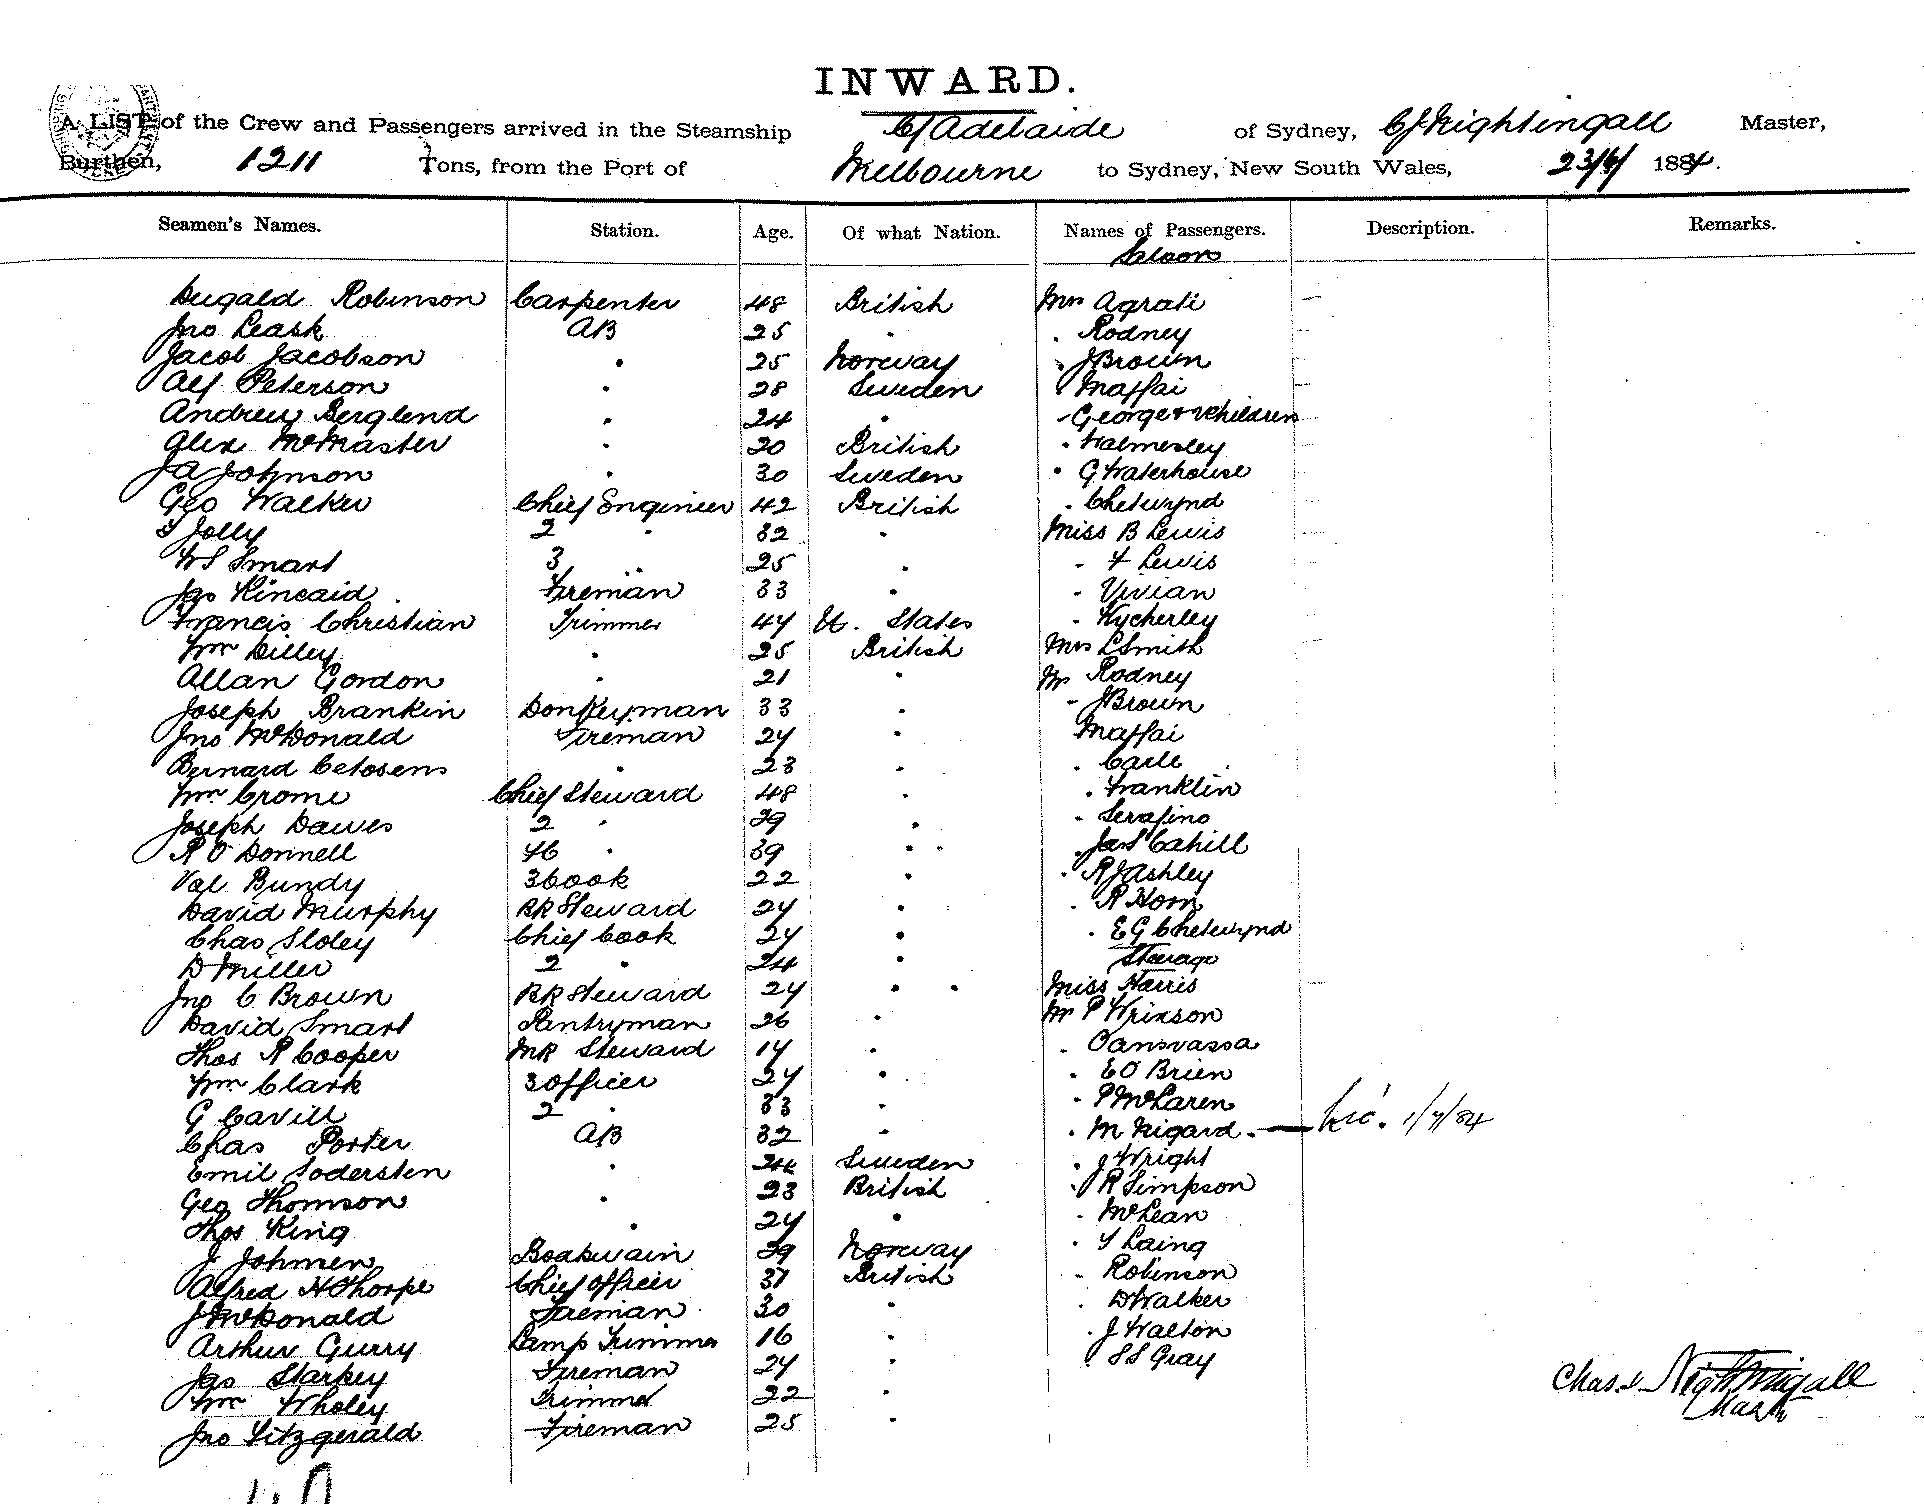 INWARD.
A LIST of the Crew and Passengers arrived in the Steamship C/ Adelaide of Sydney, CJ Nightingall Master,
Burthen, 1211 Tons, from the Port of Melbourne to Sydney, New South Wales, 23/6/ 1884.
Seamen's Names. Station. Age. Of what Nation. Names of Passengers. Description. Remarks.
Saloon
Dugald Robinson Carpenter 48 British Mrs Agrati
Jno Leask AB 25 " " Rodney
Jacob Jacobson " 25 Norway " J Brown
Alf Peterson " 28 Sweden " Maffai
Andrew Berglend " 24 " " George & children
Alex McMaster " 20 British " Walmesley
JA Johnson " 30 Sweden " G Waterhouse
Geo Walker Chief Engineer 42 British " Chetwynd
Jolly 2 " 32 " Miss B Lewis
WS Smart 3 " 25 " " F Lewis
Jas Kincaid Fireman 33 " " Vivian
Francis Christian Trimmer 44 U. States " Wycherley
Wm Dilley " 25 British Mrs L Smith
Allan Gordon " 21 " Mr Rodney
Joseph Brankin Donkeyman 33 " " J Brown
Jno McDonald Fireman 24 " Maffai
Bernard " 23 " " Carle
Wm Crome Chief Steward 48 " " Franklin
Joseph Dawes 2 " 29 " " Serafino
R O'Donnell " 39 " " Jas Cahill
Val Bundy 3 Cook 22 " " RJ Ashley
David Murphy BR Steward 24 " " R Horn
Chas Sloley Chief Cook 24 " " EG Chetwynd
D Miller 2 " 24 " Steerage
Jno C Brown BR Steward 24 " " Miss Harris
David Smart Pantryman 26 " Mr P Wrixson
Thos R Cooper MR Steward 14 " " Oansvassa
Wm Clark 3 officer 24 " " E O Brien
G Cavill 2 " 33 " " P McLaren
Chas Porter AB 32 " " M Nigard. — 1/7/84
Emil Sodersten " 24 Sweden " J Wright
Geo Thomson " 23 British " R Simpson
Thos King " 24 " " McLean
J Johmen Boatswain 29 Norway " Laing
Alfred H Thorpe Chief officer 37 British " Robinson
J McDonald Fireman 30 " " D Walker
Arthur Gurry Lamp Trimmer 16 " " J Walton
Jas Starkey Fireman 24 " " SS Gray
Chas. J. Nightingall
Wm Wholey Trimmer 22 "
Jno Fitzgerald Fireman 25 "
40